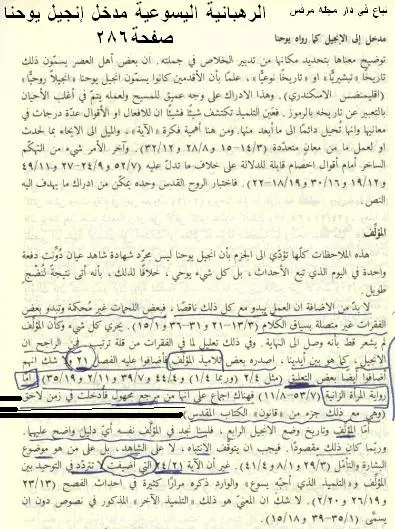 تباع في دار مجلة مرقس
الرهبانية اليسوعية مدخل إنجيل يوحنا
صفحة ٢٨٦
مدخل إلى الانجيل كما رواه يوحنا
توضيح معناها بتحديد مكانها من تدبير الخلاص في جملته. ان بعض أهل العصر يسمّون ذلك
تاريخًا «تبشيريًا» او «تاريخًا نوعيًا»، علمًا بأن الأقدمين كانوا يسمّون انجيل يوحنا «انجيلاً روحيًا»
(اقليمنضس الاسكندري). وهذا الادراك على وجه عميق للمسيح ولعمله يتمّ في أغلب الأحيان
بالتعبير عن تاريخه بالرموز. فعينَ التلميذ تكتشف شيئًا فشيئًا ان للافعال او الأقوال عدّة درجات في
معانيها وانها تحيل دائمًا الى ما أبعد منها. ومن هنا أهمية فكرة «الآية»، والميل الى الايحاء بما لحدث
او لعمل ما من معانٍ متعدّدة (١٤/٣-١٥ و٢٨/٨ و٣٢/١٢). وآخر الأمر شيء من التهكّم
الساخر أمام أقوال اخصام قابلة للدلالة على خلاف ما تدلّ عليه (٥٢/٧ و٢٤/٩-٢٧ و٤٩/١١
و١٩/١٢ و٣٠/١٦ و١٨/١٩-٢٢). فاختبار الروح القدس وحده يمكّن من ادراك ما يهدف اليه
النص.
المؤلف
هذه الملاحظات كلّها تؤدّي الى الجزم بأن انجيل يوحنا ليس مجرّد شهادة شاهد عيان دُوّنت دفعة
واحدة في اليوم الذي تبع الأحداث، بل كل شيء يوحي، خلافًا لذلك، بأنه أتى نتيجةً لنُضج
طويل.
لا بدّ من الاضافة ان العمل يبدو مع كل ذلك ناقصًا، فبعض اللحمات غير مُحكمة وتبدو بعض
الفقرات غير متصلة بسياق الكلام (١٣/٣-٢١ و٣١-٣٦ و١٥/١). يجري كل شيء وكأن المؤلف
لم يشعر قط بأنه وصل الى النهاية. وفي ذلك تعليل لما في الفقرات من قلة ترتيب. فمن الراجح ان
الانجيل، كما هو بين أيدينا، أصدره بعض تلاميذ المؤلف فأضافوا عليه الفصل ٢١ ولا شك انهم
أضافوا أيضًا بعض التعليق (مثل ٢/٤ (وربما ١/٤) و٤٤/٤ و٣٩/٧ و٢/١١ و٣٥/١٩). أمّا
رواية المرأة الزانية (٥٣/٧-١١/٨) فهناك اجماع على انها من مرجع مجهول فأُدخلت في زمن لاحق
(وهي مع ذلك جزء من «قانون» الكتاب المقدس)
أمّا المؤلف وتاريخ وضع الانجيل الرابع، فلسنا نجد في المؤلف نفسه أيّ دليل واضح عليهما.
وربما كان ذلك مقصودًا. فيجب ان يتوقف الانتباه، لا على الشاهد، بل على من هو موضوع
البشارة والتأمل (٢٩/٣ و٨/١ و٤١/٤). غير أن الآية ٢٤/٢١ التي أضيفت لا تتردّد في التوحيد بين
المؤلف و«التلميذ الذي أحبّه يسوع» والوارد ذكره مرارًا كثيرة في احداث الفصح (٢٣/١٣
و٢٦/١٩ و٢/٢٠). لا شك ان المعنيّ هو ذلك «التلميذ الآخر» المذكور في نصوص دون ان
يسمّى (٣٥/١-٣٩ و١٥/١٨).